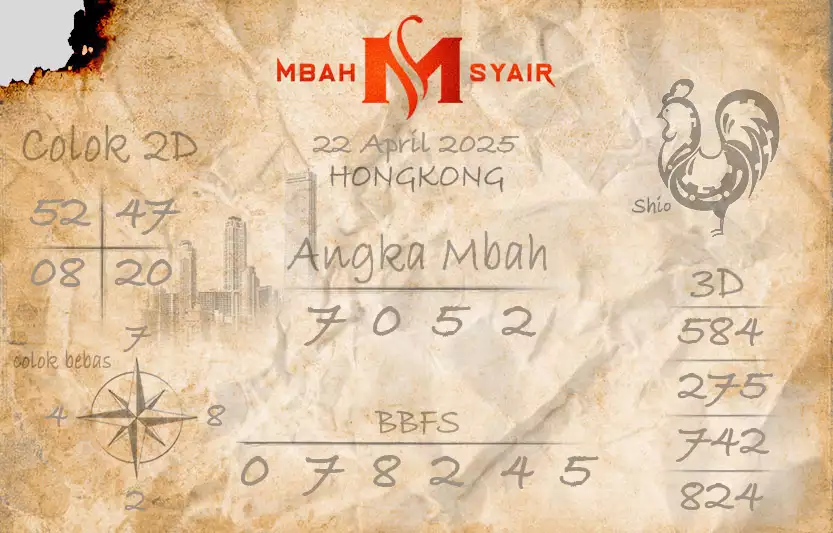 MBAH M SYAIR
22 April 2025
HONGKONG
Colok 2D
52 47
08 20
Shio
Angka Mbah
7 0 5 2
3D
584
275
742
824
colok bebas
7
4 8
2
BBFS
0 7 8 2 4 5